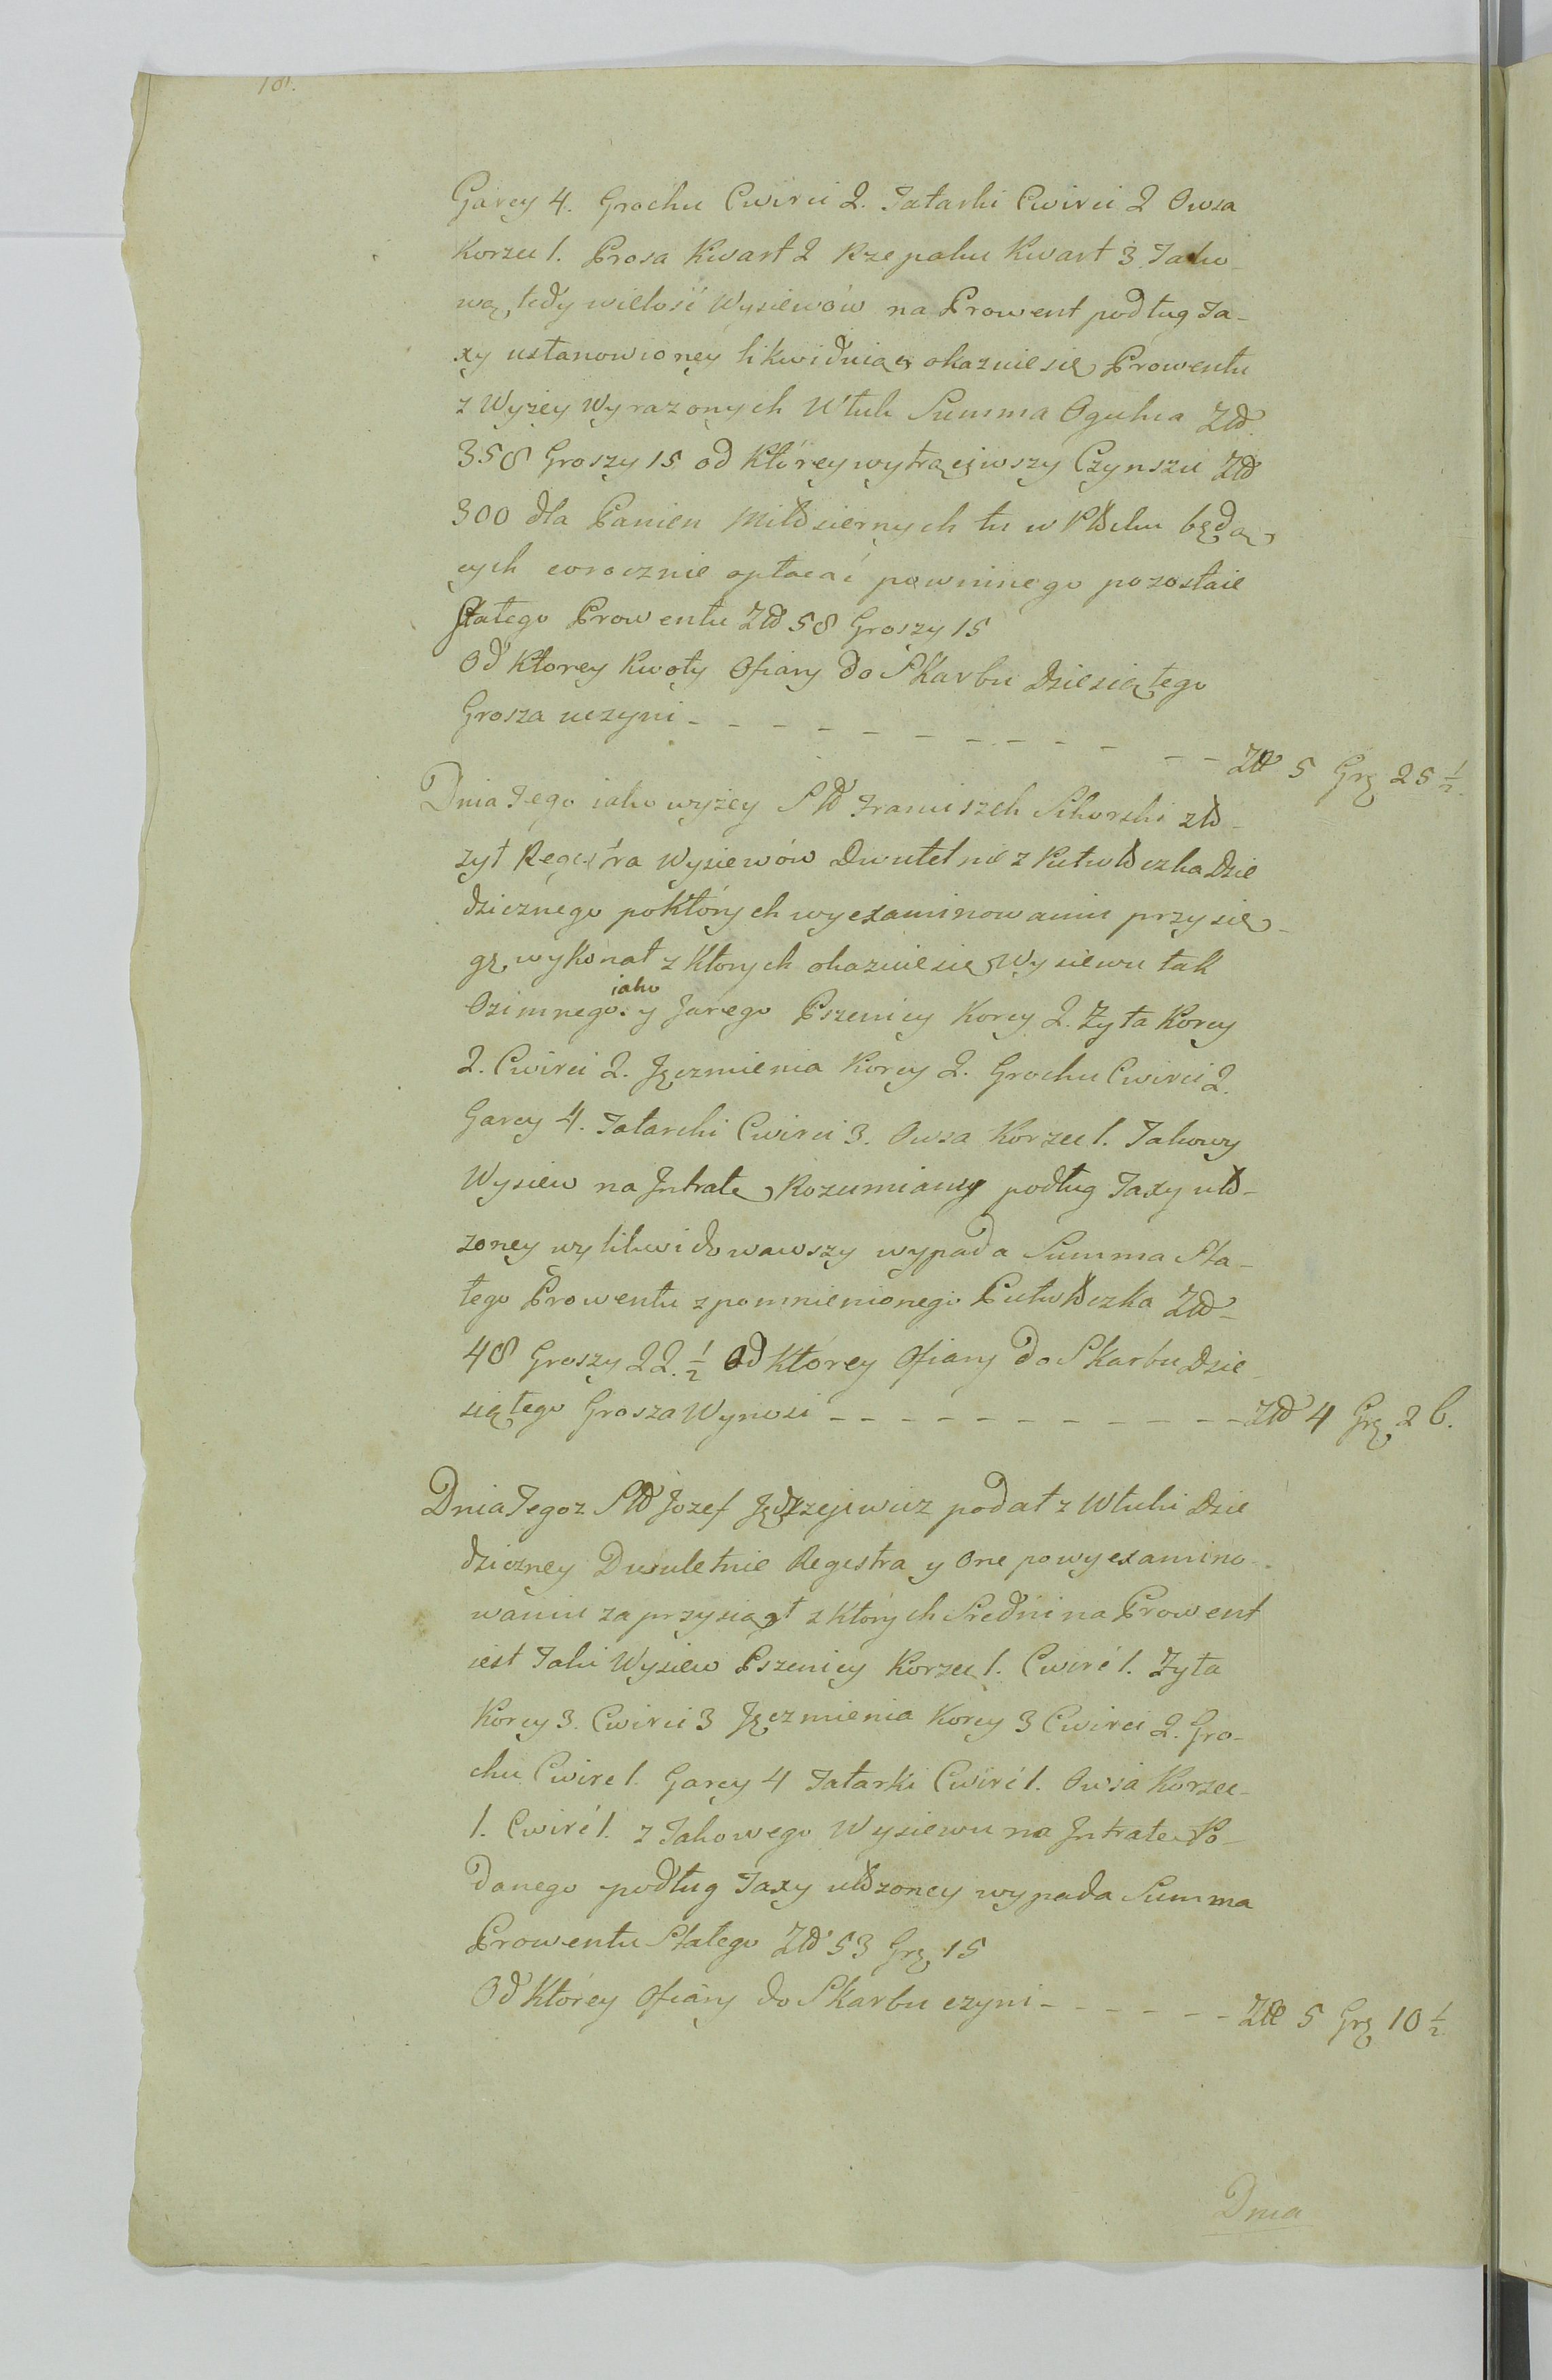 18.
Garcy 4. Grochu Cwirci 2. Tatarki Cwirci 2 Owsa
Korzec 1. Prosa Kwart 2 Rzepaku Kwart 3. Tako-
wą tedy wielość Wysiewów na Prowent podług Ta-
xy ustanowioney likwiduiąc okazuie się Prowentu
z Wyżey Wyrazonych Włuk Summa Ogulna Złł
358 Groszy 15 od Którey wytrąciwszy Czynszu Złł
300 dla Panien Miłłsiernych tu w Płłcku będą-
cych corocznie opłacać powinnego pozostaie
Stałego Prowentu Złł 58 Groszy 15
Od Ktorey Kwoty Ofiary do Skarbu Dziesiątego
Grosza uczyni - - - - - - - - - - - - Złł 5 Grꝫ 25 ½.
Dnia Tego iako wyżey Słł Franciszek Sikorski złł-
żył Regestra Wysiewów Dwuletnie z Pułwłłczka Dzie
dzicznego po Których wyexaminowaniu przysię-
gę wykonał z Ktorych okazuie się Wysiewu tak
Ozimnego iako y Jarego Pszenicy Korcy 2. Zyta Korcy
2. Cwirci 2. Jęczmienia Korcy 2. Grochu Cwirci 2.
Garcy 4. Tatarki Cwirci 3. Owsa Korzec 1. Takowy
Wysiew na Jntratę Rozumiany podług Taxy ułł-
żoney wylikwidowawszy wypada Summa Sta-
łego Prowentu z pomnienionego Pułwłłczka Złł-
48 Groszy 22. ½ Od Którey Ofiary do Skarbu Dzie-
siątego Grosza Wynosi - - - - - - - - - - - - Złł 4 Grꝫ 26.
Dnia Tegoz Słł Jozef Jędrzejewicz podał z Włuki Dzie
dziczney Dwuletnie Regestra y One po wyexamino-
waniu zaprzysiągł z Których Sredni na Prowent
iest Taki Wysiew Pszenicy Korzec 1. Cwirć 1. Zyta
Korcy 3. Cwirci 3 Jęczmienia Korcy 3 Cwirci 2. Gro-
chu Cwirc 1. Garcy 4 Tatarki Cwirć 1. Owsa Korzec-
1. Cwirć 1. z Takowego Wysiewu na Jntratę Po-
danego podług Taxy ułłżoney wypada Summa
Prowentu Stałego Złł 53 Grꝫ 15
Od Którey Ofiary do Skarbu czyni - - - - - - Złł 5 Grꝫ 10 ½
Dnia